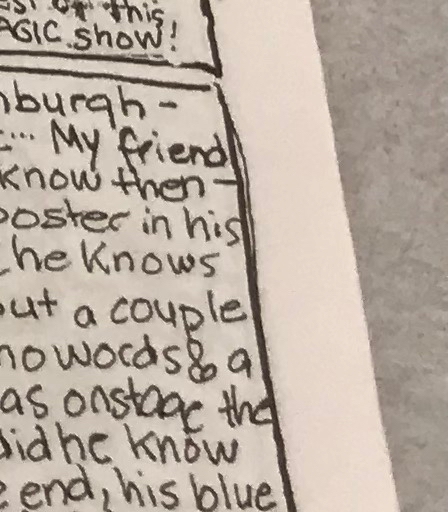 of this
AGIC show!
nburgh -
... My friend
know then -
poster in his
he knows
out a couple
no words & a
as onstage the
did he know
end, his blue